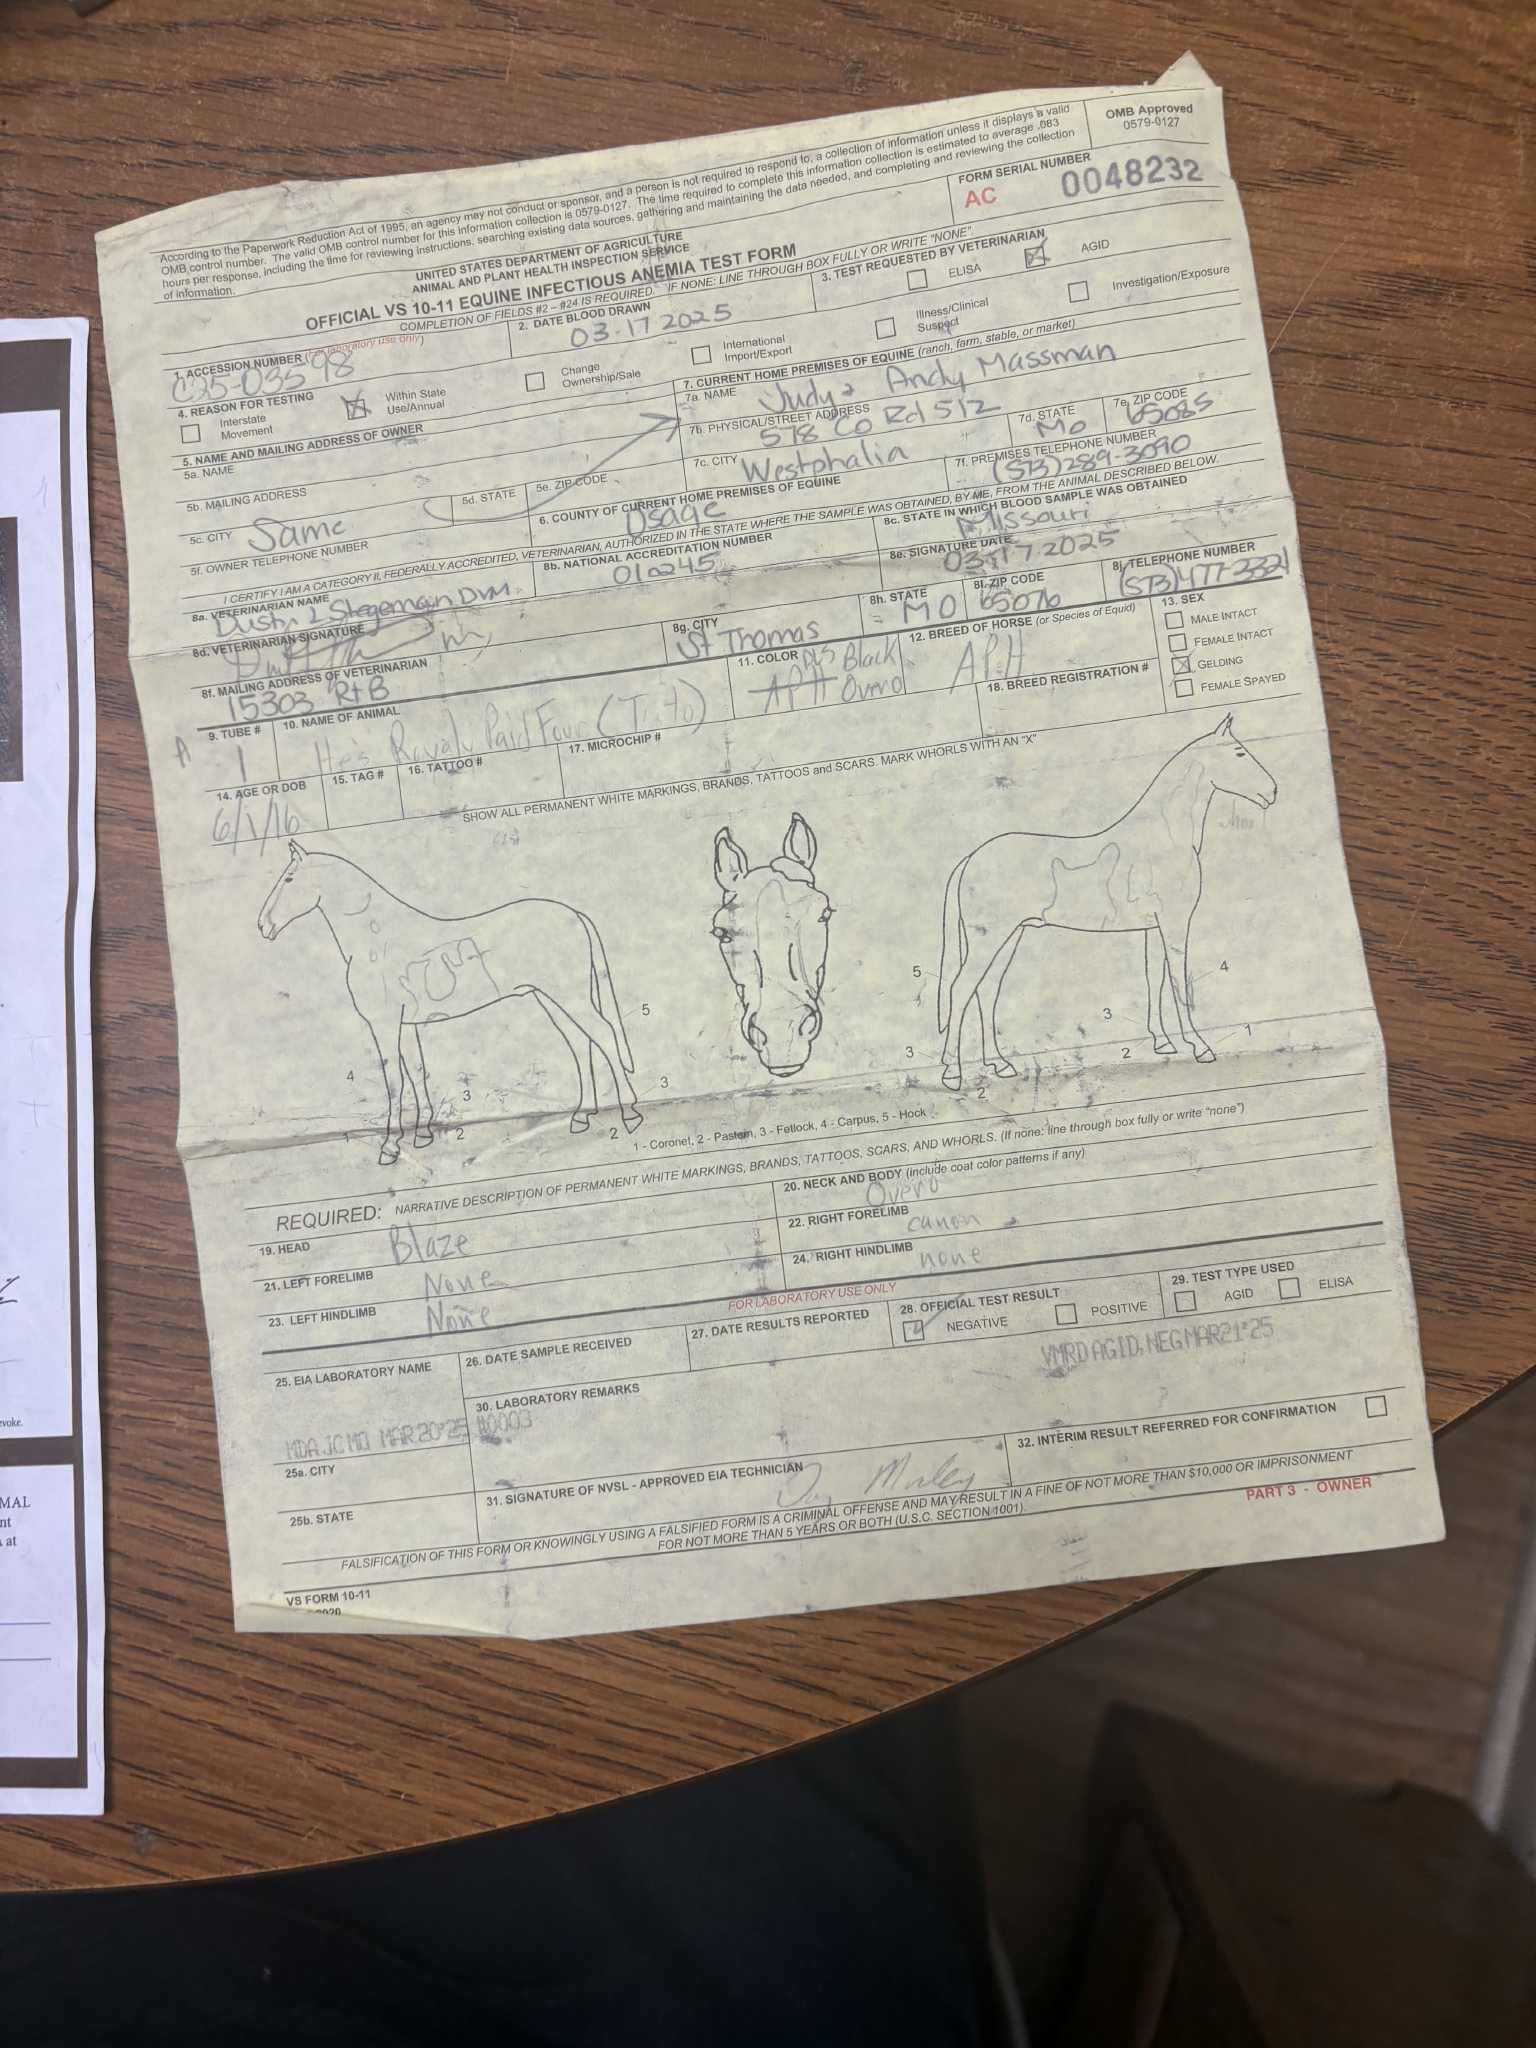 According to the Paperwork Reduction Act of 1995, an agency may not conduct or sponsor, and a person is not required to respond to, a collection of information unless it displays a valid
OMB control number. The valid OMB control number for this information collection is 0579-0127. The time required to complete this information collection is estimated to average .083
hours per response, including the time for reviewing instructions, searching existing data sources, gathering and maintaining the data needed, and completing and reviewing the collection
of information.
OMB Approved
0579-0127
UNITED STATES DEPARTMENT OF AGRICULTURE
ANIMAL AND PLANT HEALTH INSPECTION SERVICE
OFFICIAL VS 10-11 EQUINE INFECTIOUS ANEMIA TEST FORM
COMPLETION OF FIELDS #2 – #24 IS REQUIRED. IF NONE: LINE THROUGH BOX FULLY OR WRITE "NONE".
FORM SERIAL NUMBER
AC 0048232
1. ACCESSION NUMBER (For laboratory use only)
C25-03598
2. DATE BLOOD DRAWN
03-17 2025
3. TEST REQUESTED BY VETERINARIAN
ELISA
AGID
4. REASON FOR TESTING
Interstate
Movement
Within State
Use/Annual
Change
Ownership/Sale
International
Import/Export
Illness/Clinical
Suspect
Investigation/Exposure
5. NAME AND MAILING ADDRESS OF OWNER
5a. NAME
5b. MAILING ADDRESS
5c. CITY
Same
5d. STATE
5e. ZIP CODE
5f. OWNER TELEPHONE NUMBER
7. CURRENT HOME PREMISES OF EQUINE (ranch, farm, stable, or market)
7a. NAME
Judy & Andy Massman
7b. PHYSICAL/STREET ADDRESS
578 Co Rd 512
7c. CITY
Westphalia
7d. STATE
Mo
7e. ZIP CODE
65085
7f. PREMISES TELEPHONE NUMBER
(573) 289-3090
6. COUNTY OF CURRENT HOME PREMISES OF EQUINE
Osage
I CERTIFY I AM A CATEGORY II, FEDERALLY ACCREDITED, VETERINARIAN, AUTHORIZED IN THE STATE WHERE THE SAMPLE WAS OBTAINED, BY ME, FROM THE ANIMAL DESCRIBED BELOW.
8a. VETERINARIAN NAME
Dustin L Stegeman DVM
8b. NATIONAL ACCREDITATION NUMBER
010245
8c. STATE IN WHICH BLOOD SAMPLE WAS OBTAINED
Missouri
8d. VETERINARIAN SIGNATURE
8e. SIGNATURE DATE
03-17-2025
8f. MAILING ADDRESS OF VETERINARIAN
15303 Rt B
8g. CITY
St Thomas
8h. STATE
MO
8i. ZIP CODE
65076
8j. TELEPHONE NUMBER
(573) 477-3321
9. TUBE #
1
10. NAME OF ANIMAL
He's Royaly Paid Four
11. COLOR
DLS Black
APH Overo
12. BREED OF HORSE (or Species of Equid)
APH
13. SEX
MALE INTACT
FEMALE INTACT
GELDING
FEMALE SPAYED
14. AGE OR DOB
6/1/16
15. TAG #
16. TATTOO #
17. MICROCHIP #
18. BREED REGISTRATION #
SHOW ALL PERMANENT WHITE MARKINGS, BRANDS, TATTOOS and SCARS. MARK WHORLS WITH AN "X"
4
3
1
2
5
3
2
5
3
2
4
3
2
1
1 - Coronet, 2 - Pastern, 3 - Fetlock, 4 - Carpus, 5 - Hock
REQUIRED: NARRATIVE DESCRIPTION OF PERMANENT WHITE MARKINGS, BRANDS, TATTOOS, SCARS, AND WHORLS. (If none: line through box fully or write "none")
19. HEAD
Blaze
20. NECK AND BODY (include coat color patterns if any)
Overo
21. LEFT FORELIMB
None
22. RIGHT FORELIMB
canon
23. LEFT HINDLIMB
None
24. RIGHT HINDLIMB
none
FOR LABORATORY USE ONLY
25. EIA LABORATORY NAME
26. DATE SAMPLE RECEIVED
27. DATE RESULTS REPORTED
28. OFFICIAL TEST RESULT
NEGATIVE
POSITIVE
29. TEST TYPE USED
AGID
ELISA
VMRD AGID, NEG MAR 21 '25
30. LABORATORY REMARKS
MDA JC MO MAR 20 '25 #0003
25a. CITY
25b. STATE
31. SIGNATURE OF NVSL - APPROVED EIA TECHNICIAN
32. INTERIM RESULT REFERRED FOR CONFIRMATION
FALSIFICATION OF THIS FORM OR KNOWINGLY USING A FALSIFIED FORM IS A CRIMINAL OFFENSE AND MAY RESULT IN A FINE OF NOT MORE THAN $10,000 OR IMPRISONMENT
FOR NOT MORE THAN 5 YEARS OR BOTH (U.S.C. SECTION 1001).
PART 3 - OWNER
VS FORM 10-11
2020
evoke.
MAL
nt
at